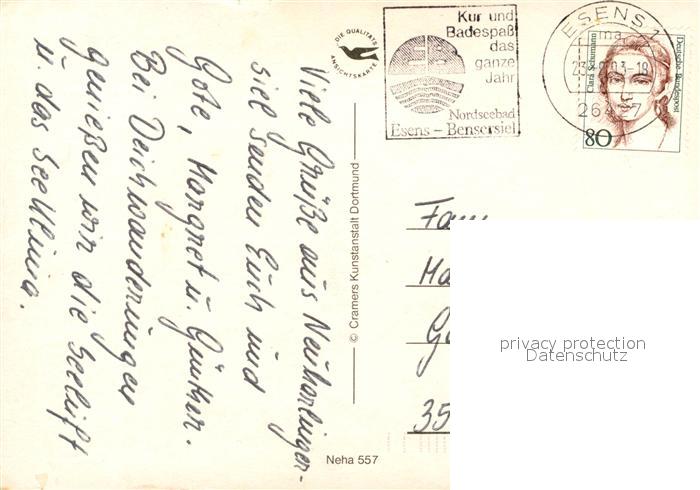 Viele Grüße aus Neuharlinger-
siel senden Euch und
Gote, Margret u. Günther.
Bei Deichwanderungen
genießen wir die Seeluft
u. das Seeklima.
DIE QUALITÄTS
ANSICHTSKARTE
© Cramers Kunstanstalt Dortmund
Neha 557
Kur und
Badespaß
das
ganze
Jahr
Nordseebad
Esens – Bensersiel
ESENS 1
ma
Clara Schumann
Deutsche Bundespost
80
Fam
Ha
35
privacy protection
Datenschutz